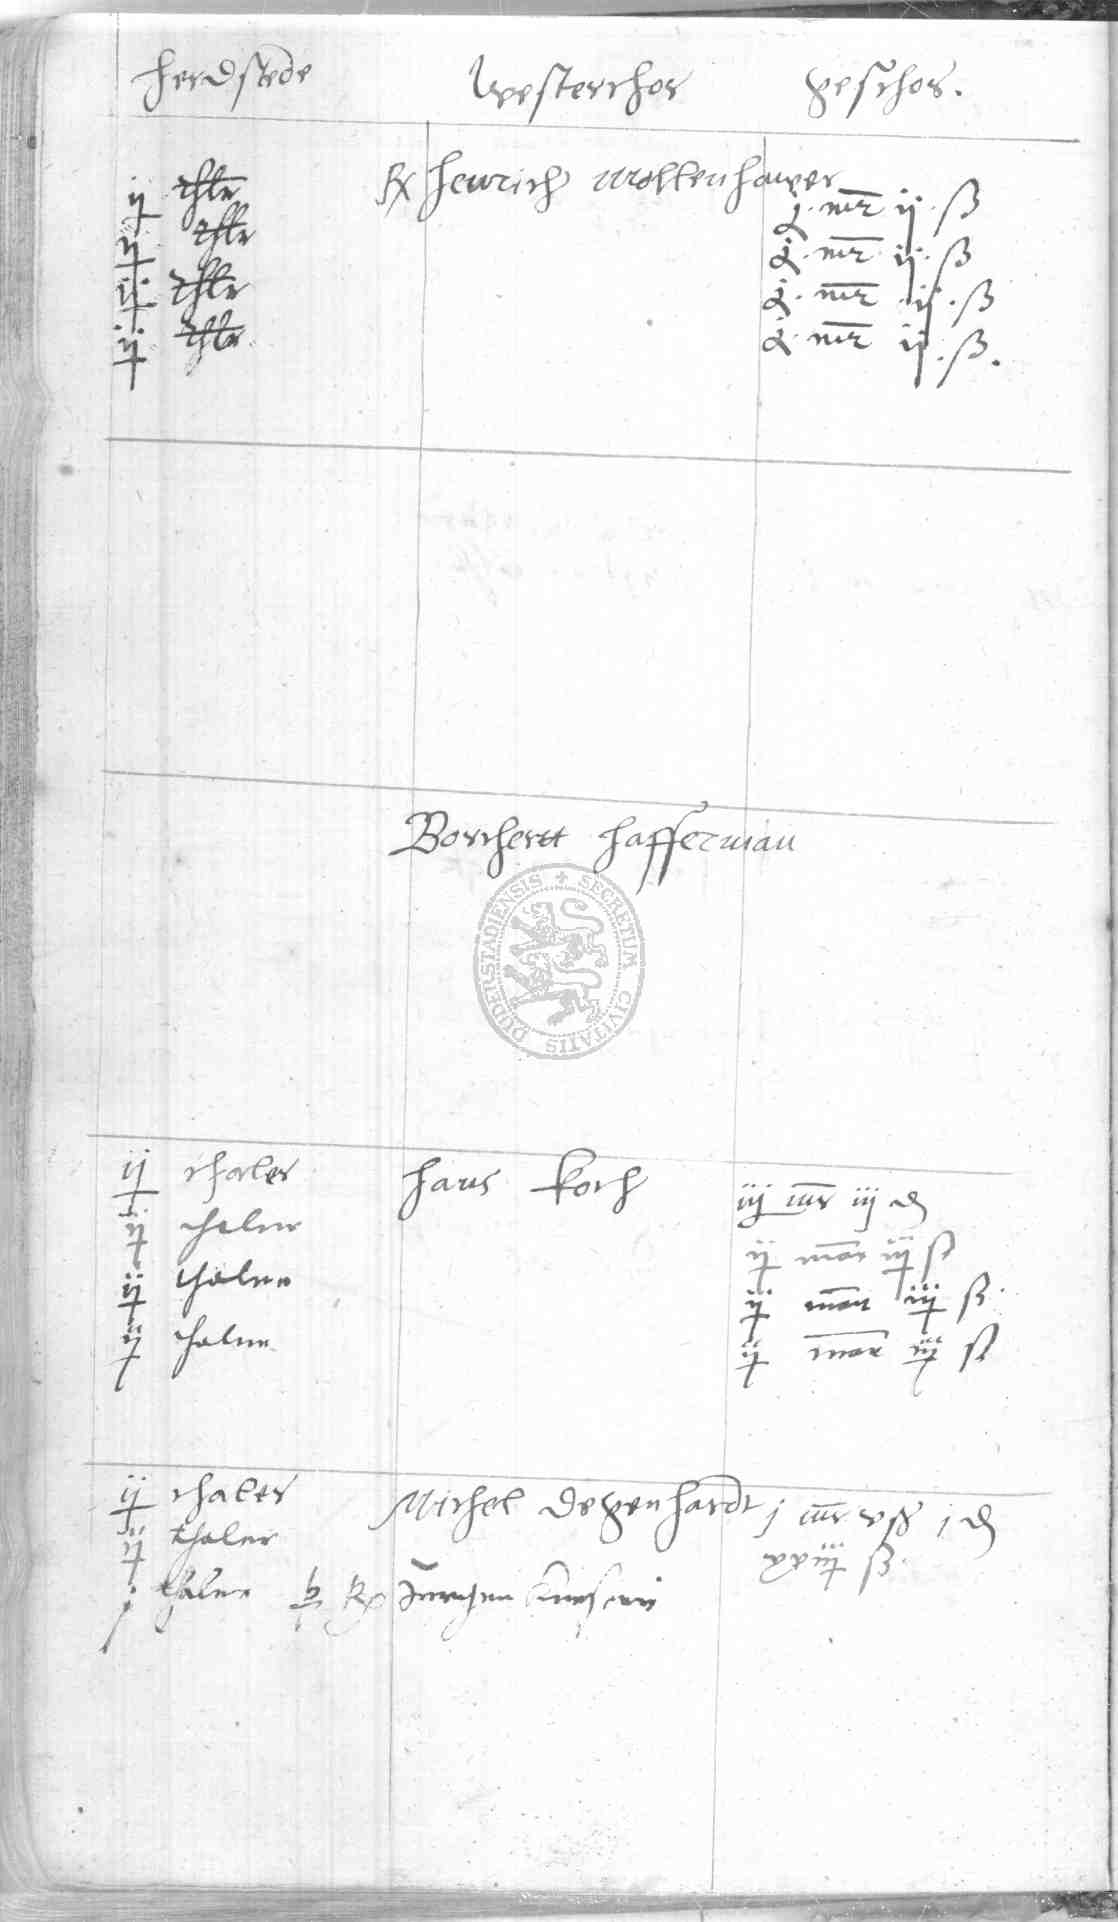 Herdstede Westerthor geschos.
Rx Heinrich Mollenhawer
ij thlr j. mr ij. ß
ij thlr j. mr ij. ß
ij thlr j. mr ij. ß
ij thlr j. mr ij. ß.
Borchertt Hafferman
DUDERSTADIENSIS + SECRETUM CIVITATIS
ij thaler Hans Koch iij mr iij d
ij thaler ij mar iij ß
ij thaler ij mar iij ß
ij thaler ij mar iij ß
ij thaler Michel Degenhardt j mr vß j d
ij thaler xxiij ß
j thaler Rx Jurgen